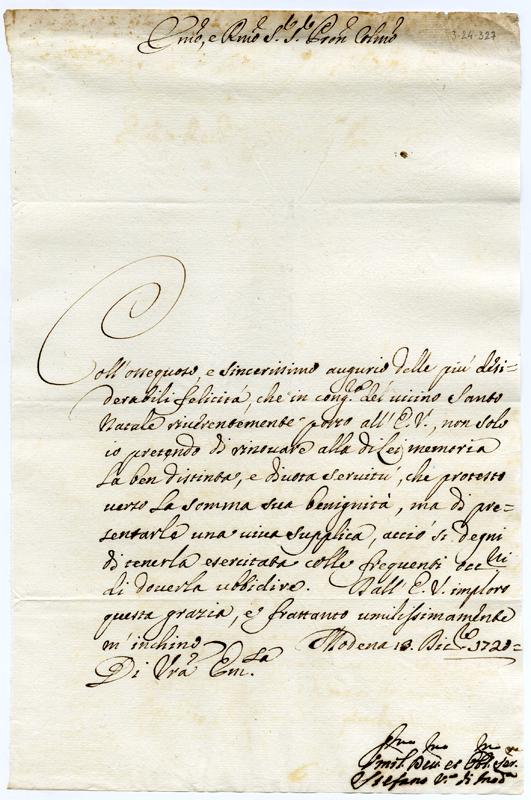 Emo, e Rmo Sre Sre Pron Colmo
3-24-327
Coll'ossequoso, e sincerissimo augurio delle più desi=
derabili felicità, che in congra del vicino Santo
Natale riverentemente porto all'E.V., non solo
io pretendo di rinovare alla di Lei memoria
la ben distinta, e divota servitù, che protesto
verso la somma sua benignità, ma di pre=
sentarle una viva supplica, acciò si degni
di tenerla esercitata colle frequenti occni
di doverla ubbidire. Dall'E.V. imploro
questa grazia, e frattanto umilissimamente
m'inchino Modena 18. Dicbre 1720=
Di Vra Em.za
Umil. Dev. et Obl. Ser.
Stefano V.o di Moda